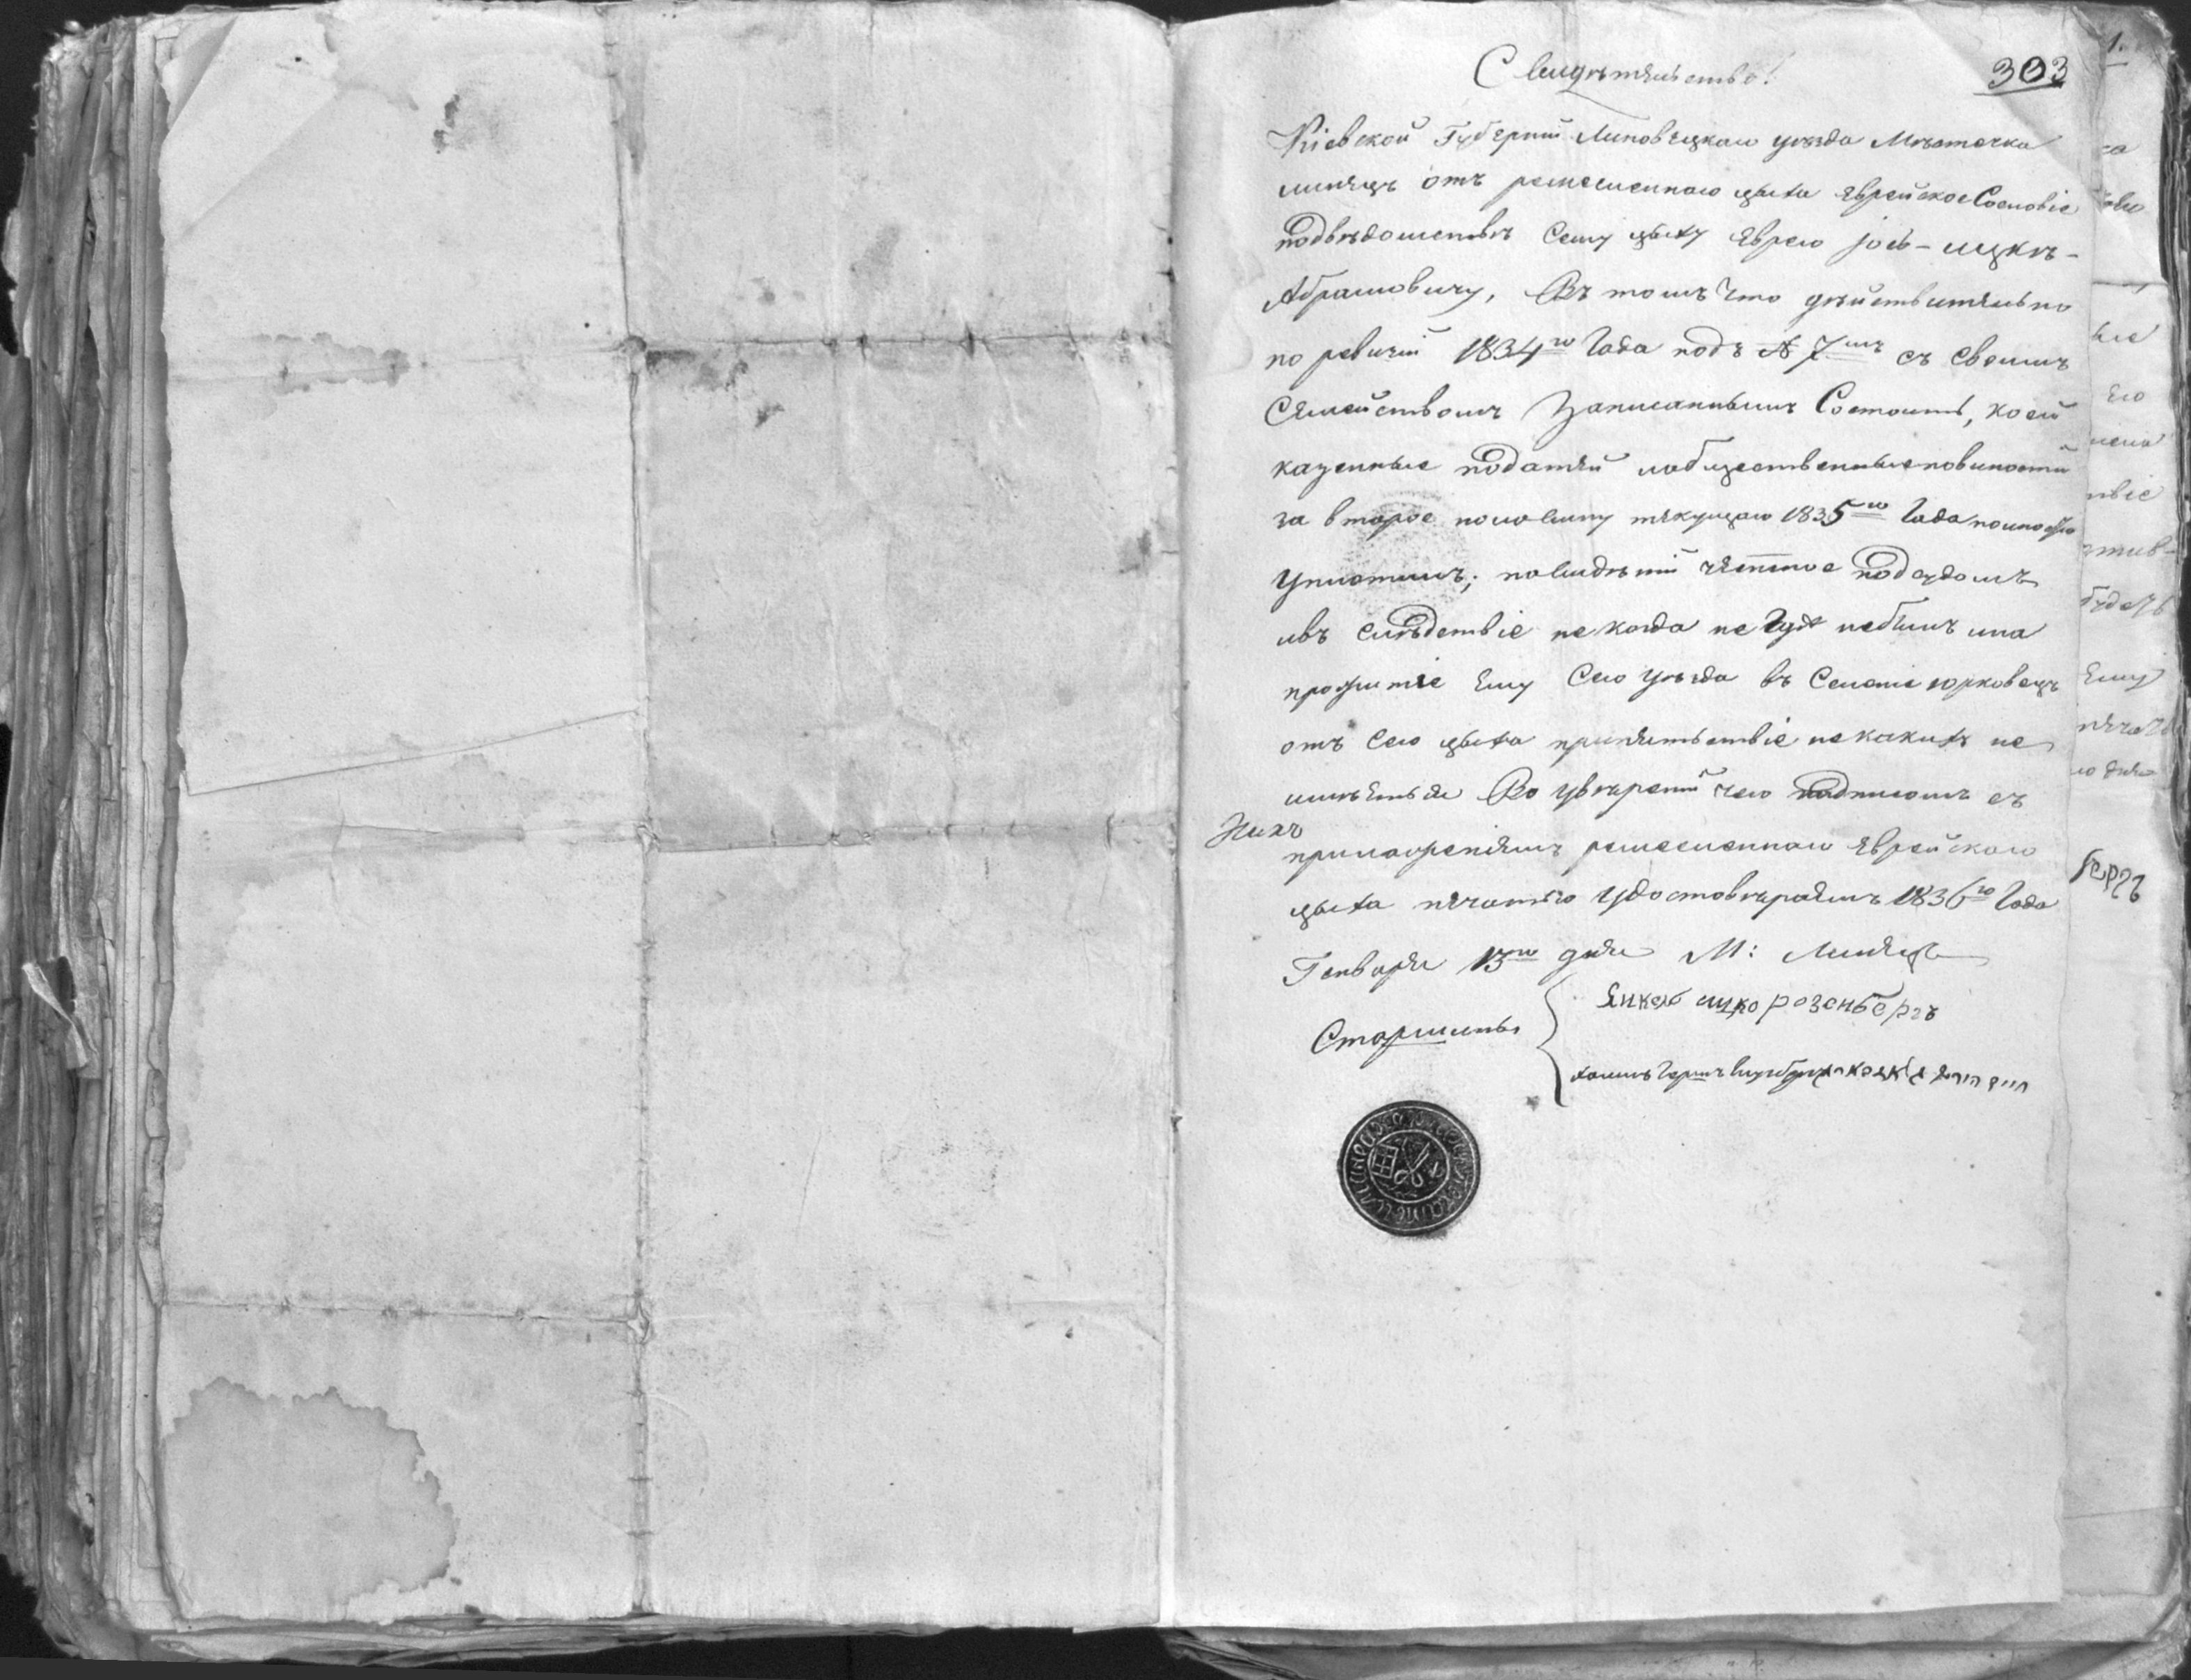 Свидѣтельство!
303
Кіевской Губерніи Липовецкаго уѣзда Мѣстечка
линецъ отъ ремесленнаго цыха Еврейское Сословіе
подвѣдомствѣ Сему цыху Еврею Іось-ицкѣ-
Абрамовичу, Въ томъ что дѣйствительно
по ревизіи 1834го Года подъ № 7мъ съ своимъ
Семействомъ Записаннымъ Состоитъ, коей
казенные податей иобщественныеповиности
за второе половину текущаго 1835го Года полностю
Уплотилъ; поведѣніи честное подсудомъ
ивъ слѣдствіе некогда не небылъ ина
прожитіе Ему Сего Уѣзда въ Селеніе юрковецъ
отъ Сего цыха припятствіе некакихъ не
имѣеться Во Увѣреніи чего подписомъ съ
приложеніемъ ремесленнаго Еврейского
цыха печатью Удостовѣраемъ 1836го Года
Генваря 13го дня М: Линецъ
Старшины
Янкель ицко розенберъ
хаимъ Гершъ
חיים הירש